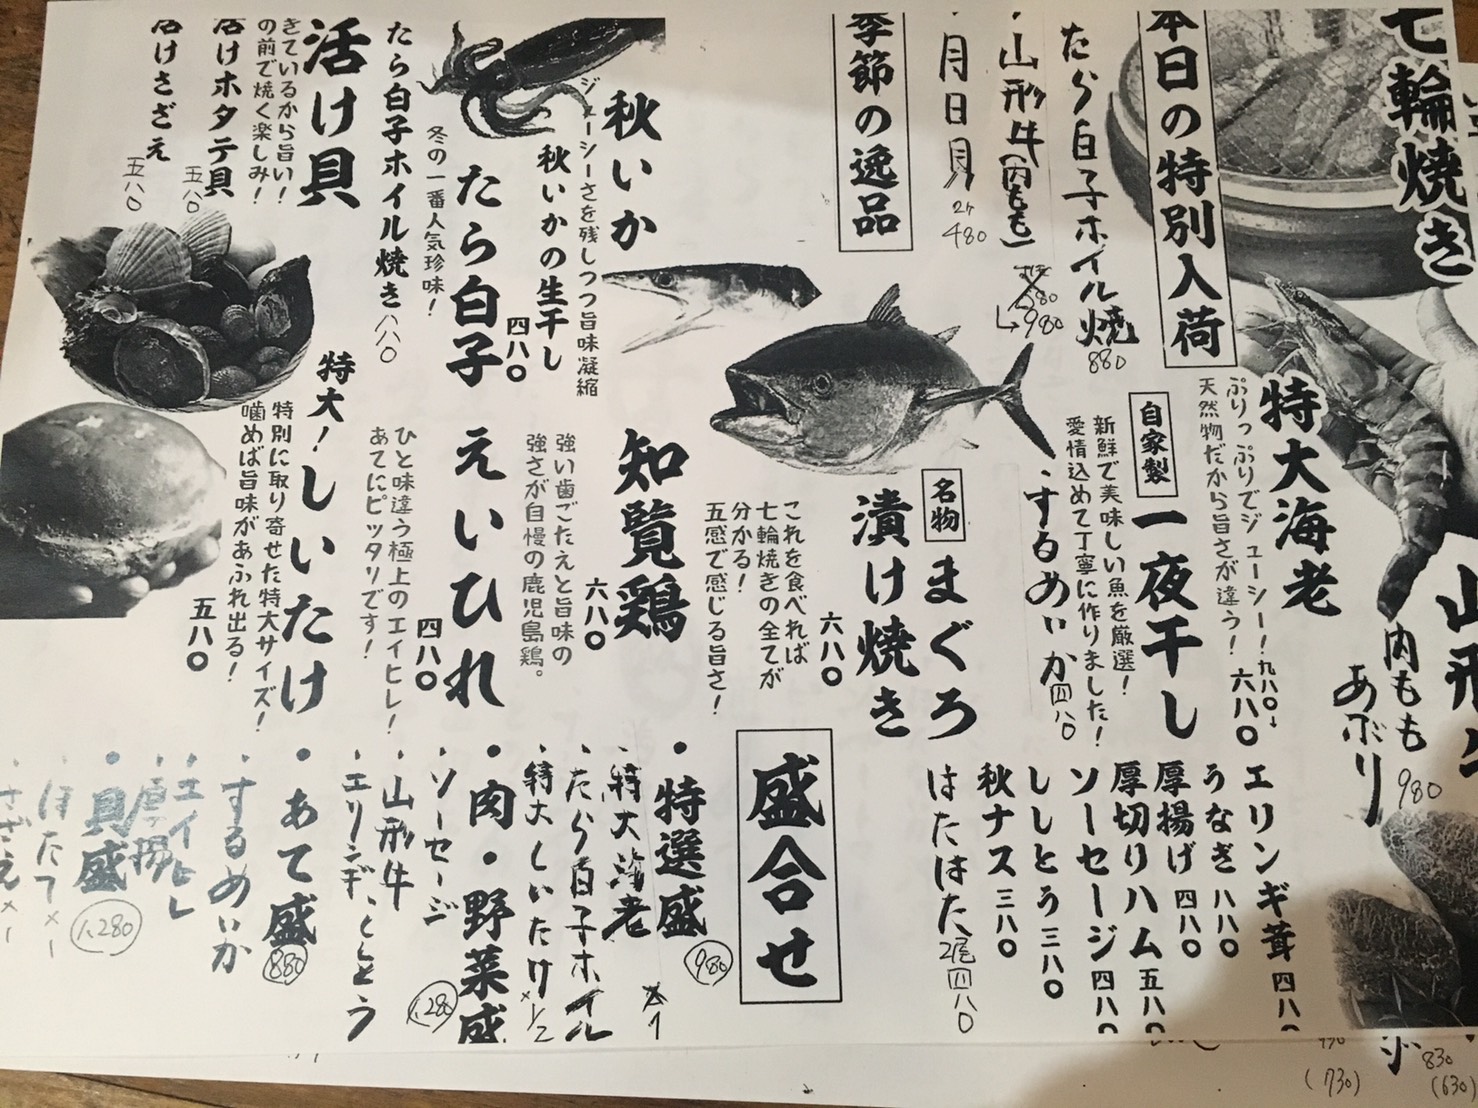 七輪焼き
本日の特別入荷
たら白子ホイル焼
880
・山形牛(内もも)
980
月日貝
2ヶ
480
季節の逸品
特大海老
ぷりっぷりでジューシー!
天然物だから旨さが違う!
九八〇
六八〇
自家製
一夜干し
新鮮で美味しい魚を厳選!
愛情込めて丁寧に作りました!
・するめいか
四八〇
名物
まぐろ
漬け焼き
六八〇
これを食べれば
七輪焼きの全てが
分かる!
五感で感じる旨さ!
秋いか
ジューシーさを残しつつ旨味凝縮
秋いかの生干し
四八〇
知覧鶏
六八〇
強い歯ごたえと旨味の
強さが自慢の鹿児島鶏。
たら白子
冬の一番人気珍味!
たら白子ホイル焼き
八八〇
えいひれ
四八〇
ひと味違う極上のエイヒレ!
あてにピッタリです!
活け貝
きているから旨い!
の前で焼く楽しみ!
活けホタテ貝
五八〇
活けさざえ
五八〇
特大!
しいたけ
特別に取り寄せた特大サイズ!
噛めば旨味があふれ出る!
五八〇
内もも
あぶり
980
エリンギ茸 四八〇
うなぎ 八八〇
厚揚げ 四八〇
厚切りハム 五八〇
ソーセージ 四八〇
ししとう 三八〇
秋ナス 三八〇
はたはた 2尾 四八〇
盛合せ
・特選盛
980
・特大海老
・たら白子ホイル
・特大しいたけ ×1/2
・肉・野菜盛
1,280
・ソーセージ
・山形牛
・エリンギ、ししとう
・あて盛
880
・するめいか
・エイヒレ
・厚揚
・貝盛
1,280
・ほたて×1
・さざえ×1
830
(630)
(730)